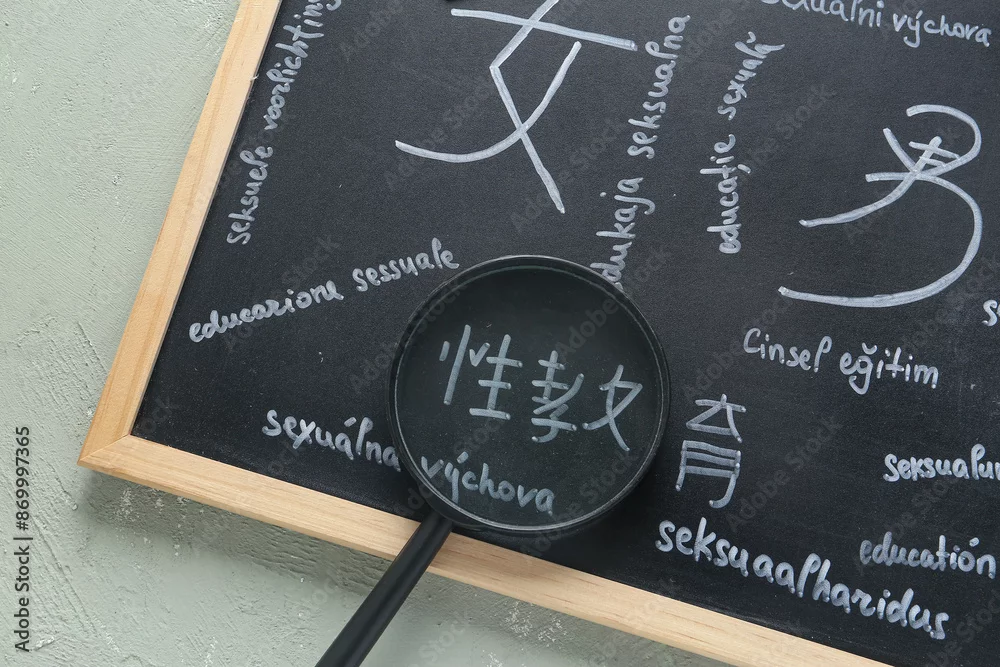 seksuele voorlichting
女
edukaja seksualna
educație sexuală
výchova
男
educazione sessuale
Cinsel eğitim
性教育
sexuálna výchova
seksuaalharidus
educatión
Adobe Stock | #869997365